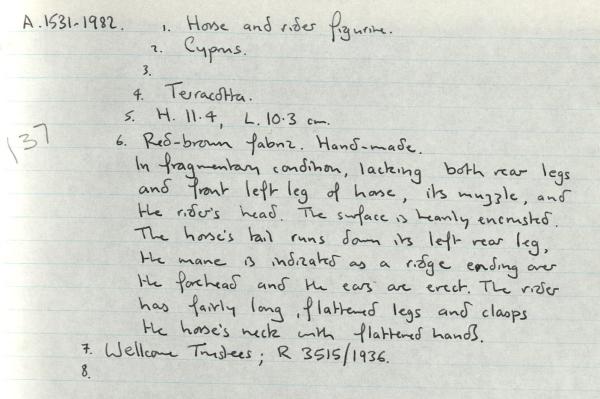 A.1531-1982. 1. Horse and rider figurine.
2. Cyprus.
3.
4. Terracotta.
5. H. 11.4, L. 10.3 cm.
137
6. Red-brown fabric. Hand-made.
In fragmentary condition, lacking both rear legs
and front left leg of horse, its muzzle, and
the rider's head. The surface is heavily encrusted.
The horse's tail runs down its left rear leg,
the mane is indicated as a ridge ending over
the forehead and the ears are erect. The rider
has fairly long, flattened legs and clasps
the horse's neck with flattened hands.
7. Wellcome Trustees; R 3515/1936.
8.